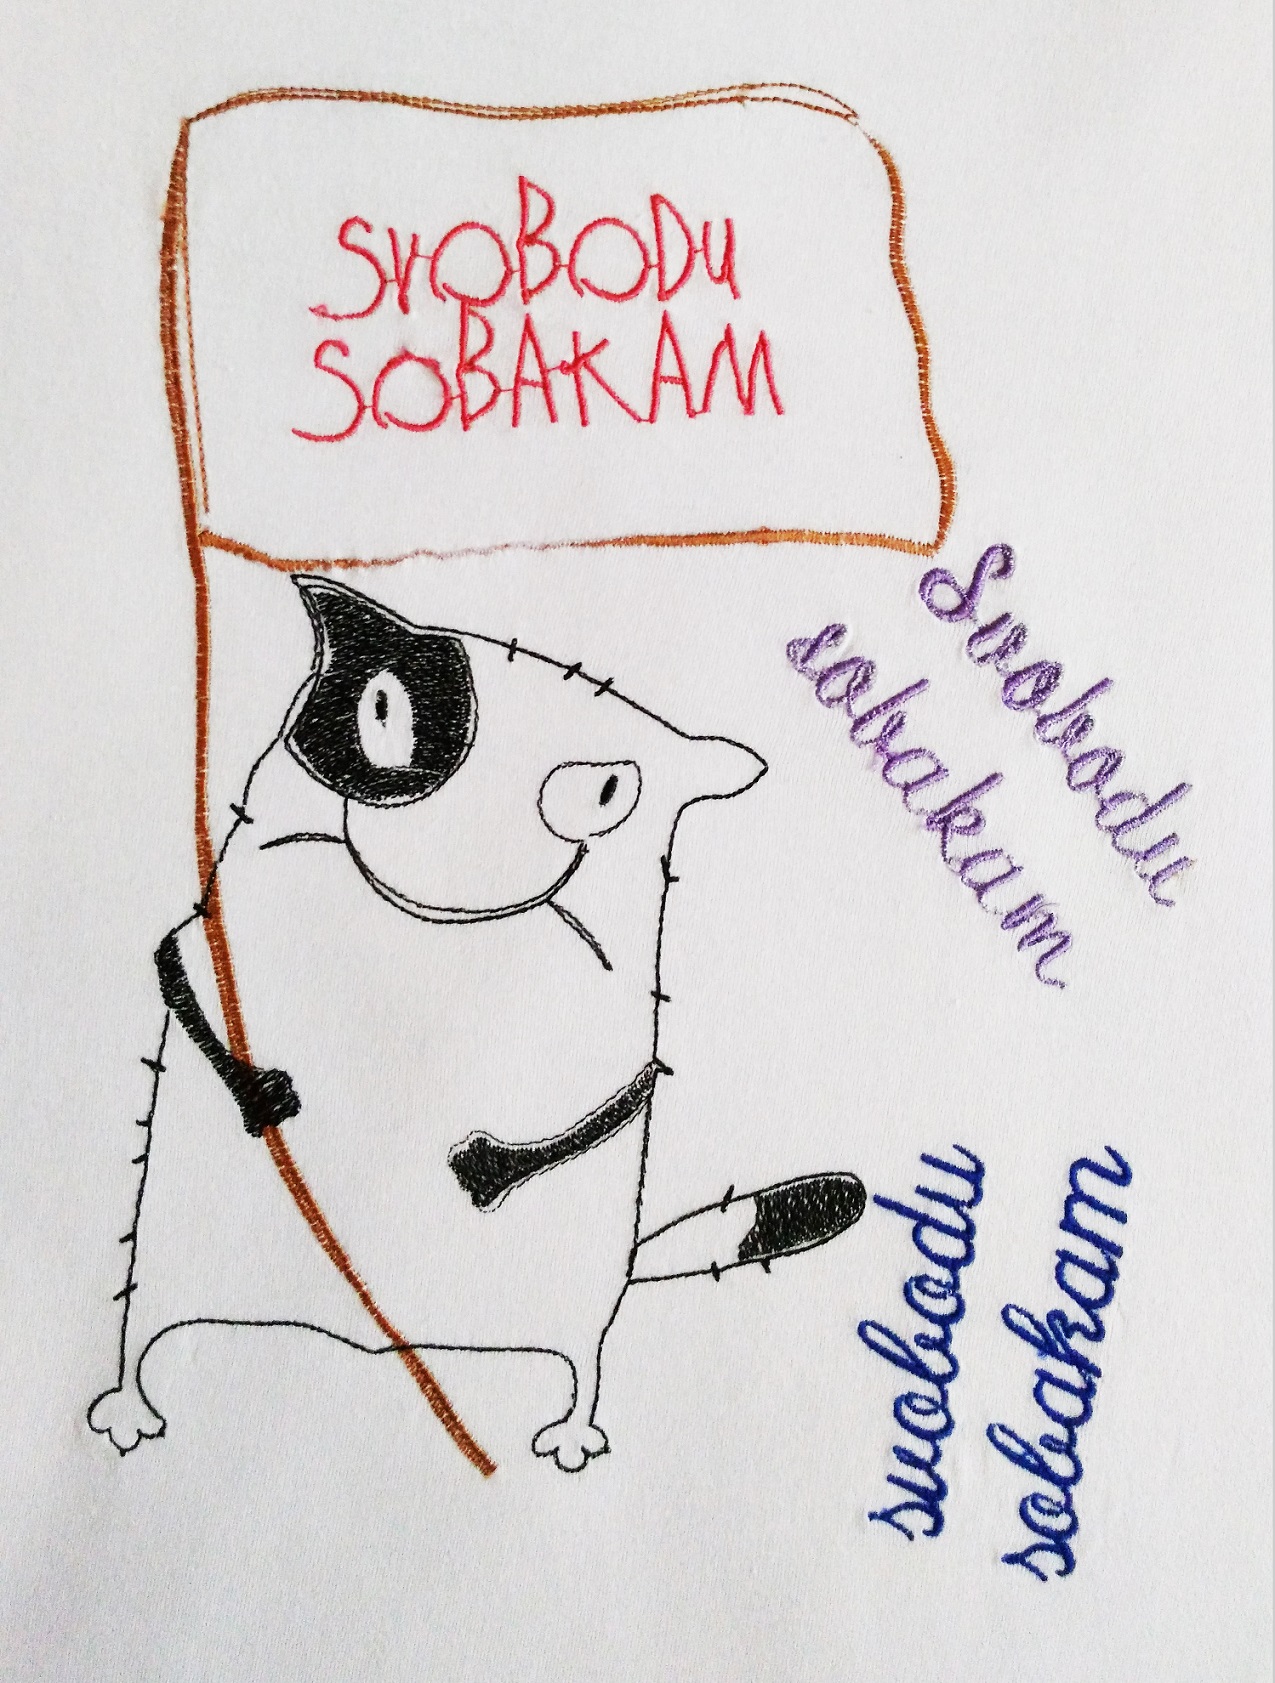 SvOBODU
SOBAKAM
Svobodu
sobakam
svobodu
sobakam